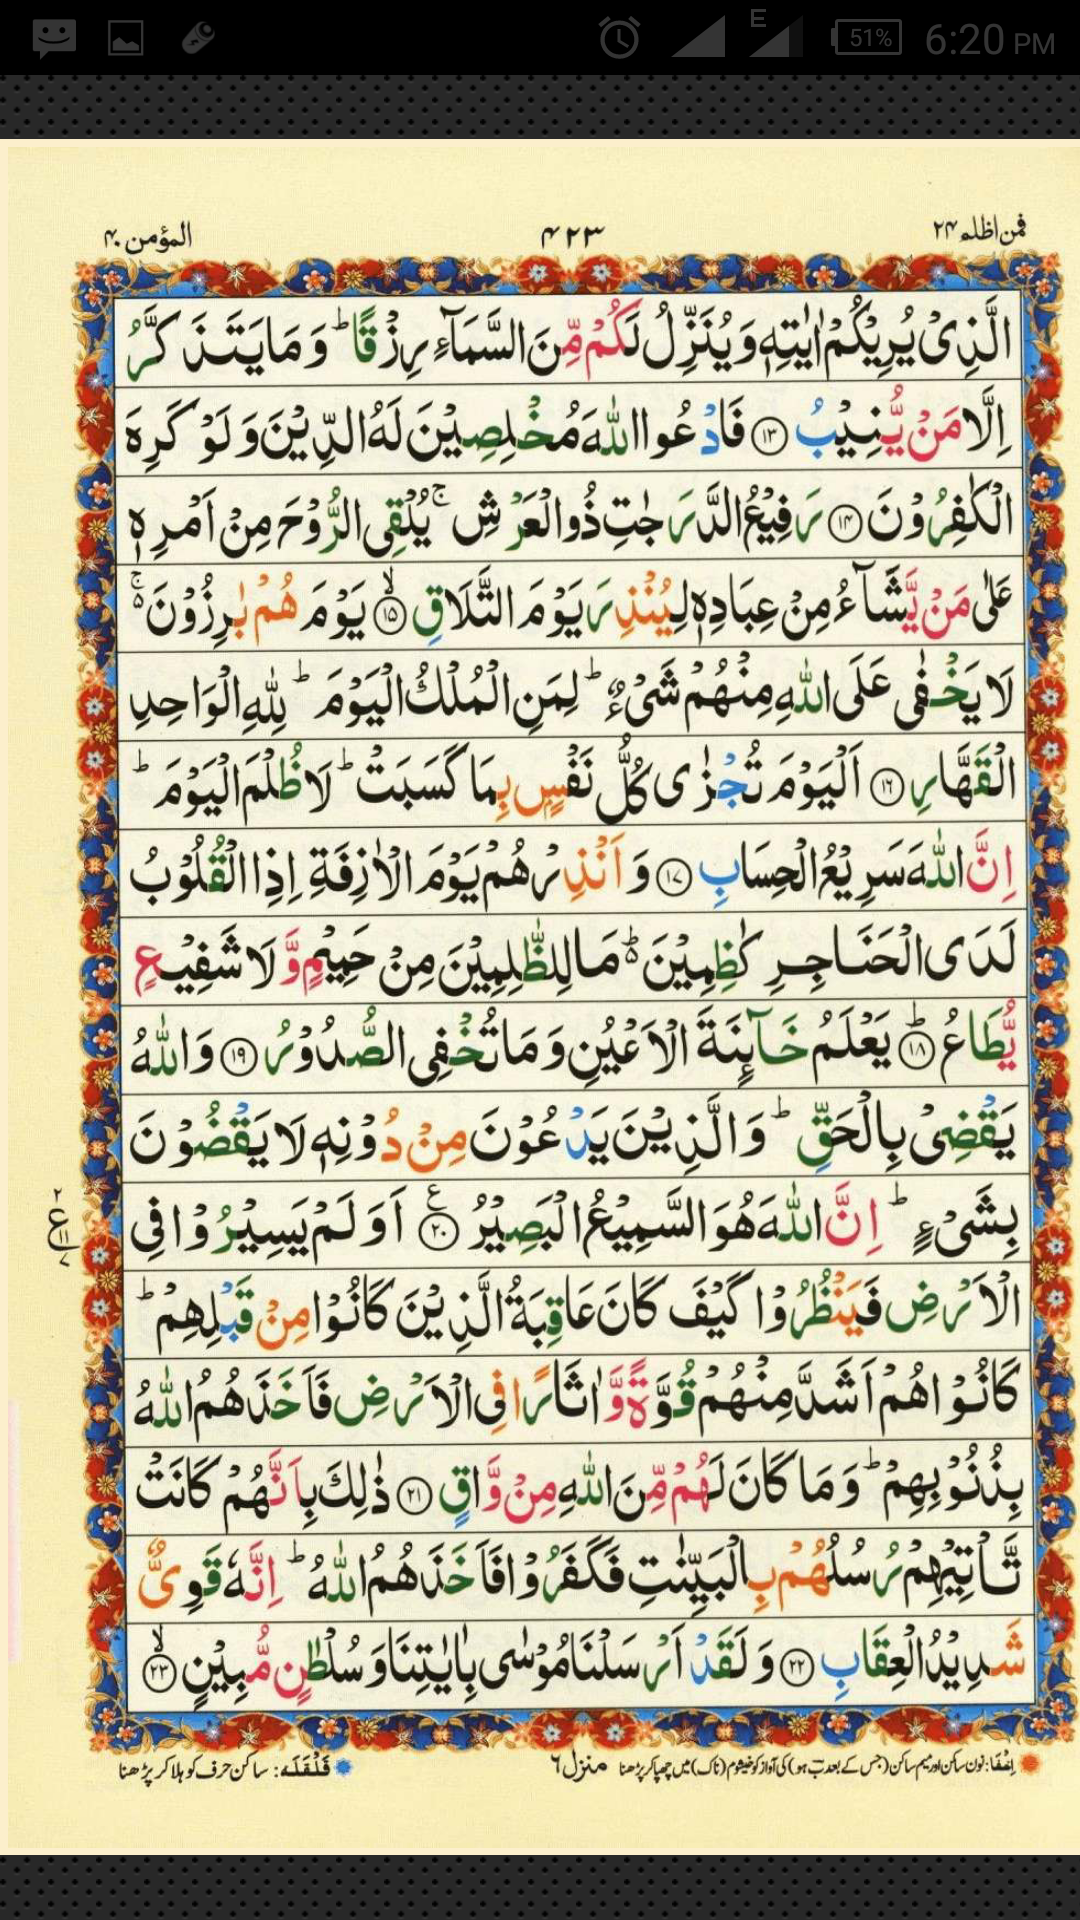 51%
E
6:20 PM
فمن اظلم ۲۴
۴۲۳
المؤمن ۴۰
الَّذِىْ يُرِيْكُمْ اٰيٰتِهٖ وَيُنَزِّلُ لَكُمْ مِّنَ السَّمَآءِ رِزْقًا ؕ وَمَا يَتَذَكَّرُ
اِلَّا مَنْ يُّنِيْبُ ۝۱۳ فَادْعُوا اللّٰهَ مُخْلِصِيْنَ لَهُ الدِّيْنَ وَلَوْ كَرِهَ
الْكٰفِرُوْنَ ۝۱۴ رَفِيْعُ الدَّرَجٰتِ ذُو الْعَرْشِ ۚ يُلْقِى الرُّوْحَ مِنْ اَمْرِهٖ
عَلٰى مَنْ يَّشَآءُ مِنْ عِبَادِهٖ لِيُنْذِرَ يَوْمَ التَّلَاقِ ۙ۝۱۵ يَوْمَ هُمْ بٰرِزُوْنَ ۚ۬
لَا يَخْفٰى عَلَى اللّٰهِ مِنْهُمْ شَىْءٌ ؕ لِمَنِ الْمُلْكُ الْيَوْمَ ؕ لِلّٰهِ الْوَاحِدِ
الْقَهَّارِ ۝۱۶ اَلْيَوْمَ تُجْزٰى كُلُّ نَفْسٍۭ بِمَا كَسَبَتْ ؕ لَا ظُلْمَ الْيَوْمَ ؕ
اِنَّ اللّٰهَ سَرِيْعُ الْحِسَابِ ۝۱۷ وَاَنْذِرْهُمْ يَوْمَ الْاٰزِفَةِ اِذِ الْقُلُوْبُ
لَدَى الْحَنَاجِرِ كٰظِمِيْنَ ۬ؕ مَا لِلظّٰلِمِيْنَ مِنْ حَمِيْمٍ وَّلَا شَفِيْعٍ
يُّطَاعُ ؕ۝۱۸ يَعْلَمُ خَآئِنَةَ الْاَعْيُنِ وَمَا تُخْفِى الصُّدُوْرُ ۝۱۹ وَاللّٰهُ
يَقْضِىْ بِالْحَقِّ ؕ وَالَّذِيْنَ يَدْعُوْنَ مِنْ دُوْنِهٖ لَا يَقْضُوْنَ
بِشَىْءٍ ؕ اِنَّ اللّٰهَ هُوَ السَّمِيْعُ الْبَصِيْرُ ۝۲۰ۧ اَوَلَمْ يَسِيْرُوْا فِى
۲
ع
۱۱
۷
الْاَرْضِ فَيَنْظُرُوْا كَيْفَ كَانَ عَاقِبَةُ الَّذِيْنَ كَانُوْا مِنْ قَبْلِهِمْ ؕ
كَانُوْا هُمْ اَشَدَّ مِنْهُمْ قُوَّةً وَّاٰثَارًا فِى الْاَرْضِ فَاَخَذَهُمُ اللّٰهُ
بِذُنُوْبِهِمْ ؕ وَمَا كَانَ لَهُمْ مِّنَ اللّٰهِ مِنْ وَّاقٍ ۝۲۱ ذٰلِكَ بِاَنَّهُمْ كَانَتْ
تَّاْتِيْهِمْ رُسُلُهُمْ بِالْبَيِّنٰتِ فَكَفَرُوْا فَاَخَذَهُمُ اللّٰهُ ؕ اِنَّهٗ قَوِىٌّ
شَدِيْدُ الْعِقَابِ ۝۲۲ وَلَقَدْ اَرْسَلْنَا مُوْسٰى بِاٰيٰتِنَا وَسُلْطٰنٍ مُّبِيْنٍ ۙ۝۲۳
اِخْفَا: نون ساکن اور میم ساکن (جس کے بعد ب ہو) کی آواز کو خیشوم (ناک) میں چھپا کر پڑھنا
منزل ۶
قَلْقَلَہ: ساکن حرف کو ہلا کر پڑھنا